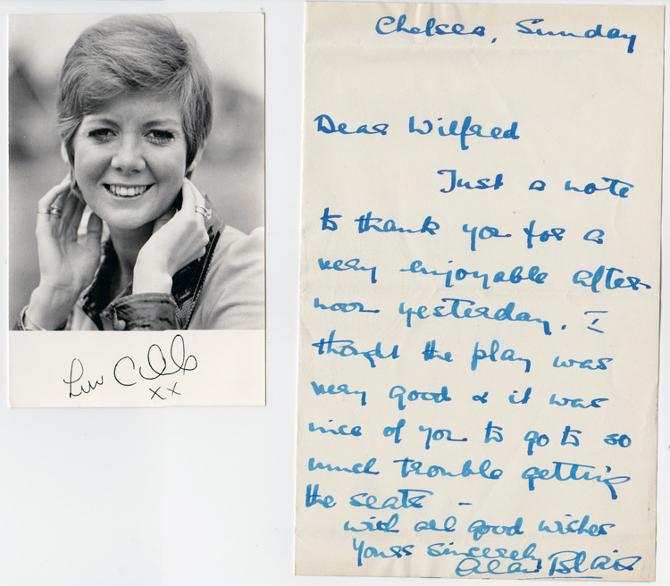 Luv Cilla
xx
Chelsea, Sunday
Dear Wilfred
Just a note
to thank you for a
very enjoyable after-
noon yesterday. I
thought the play was
very good & it was
nice of you to go to so
much trouble getting
the seats -
with all good wishes
Yours sincerely
Alan Blair